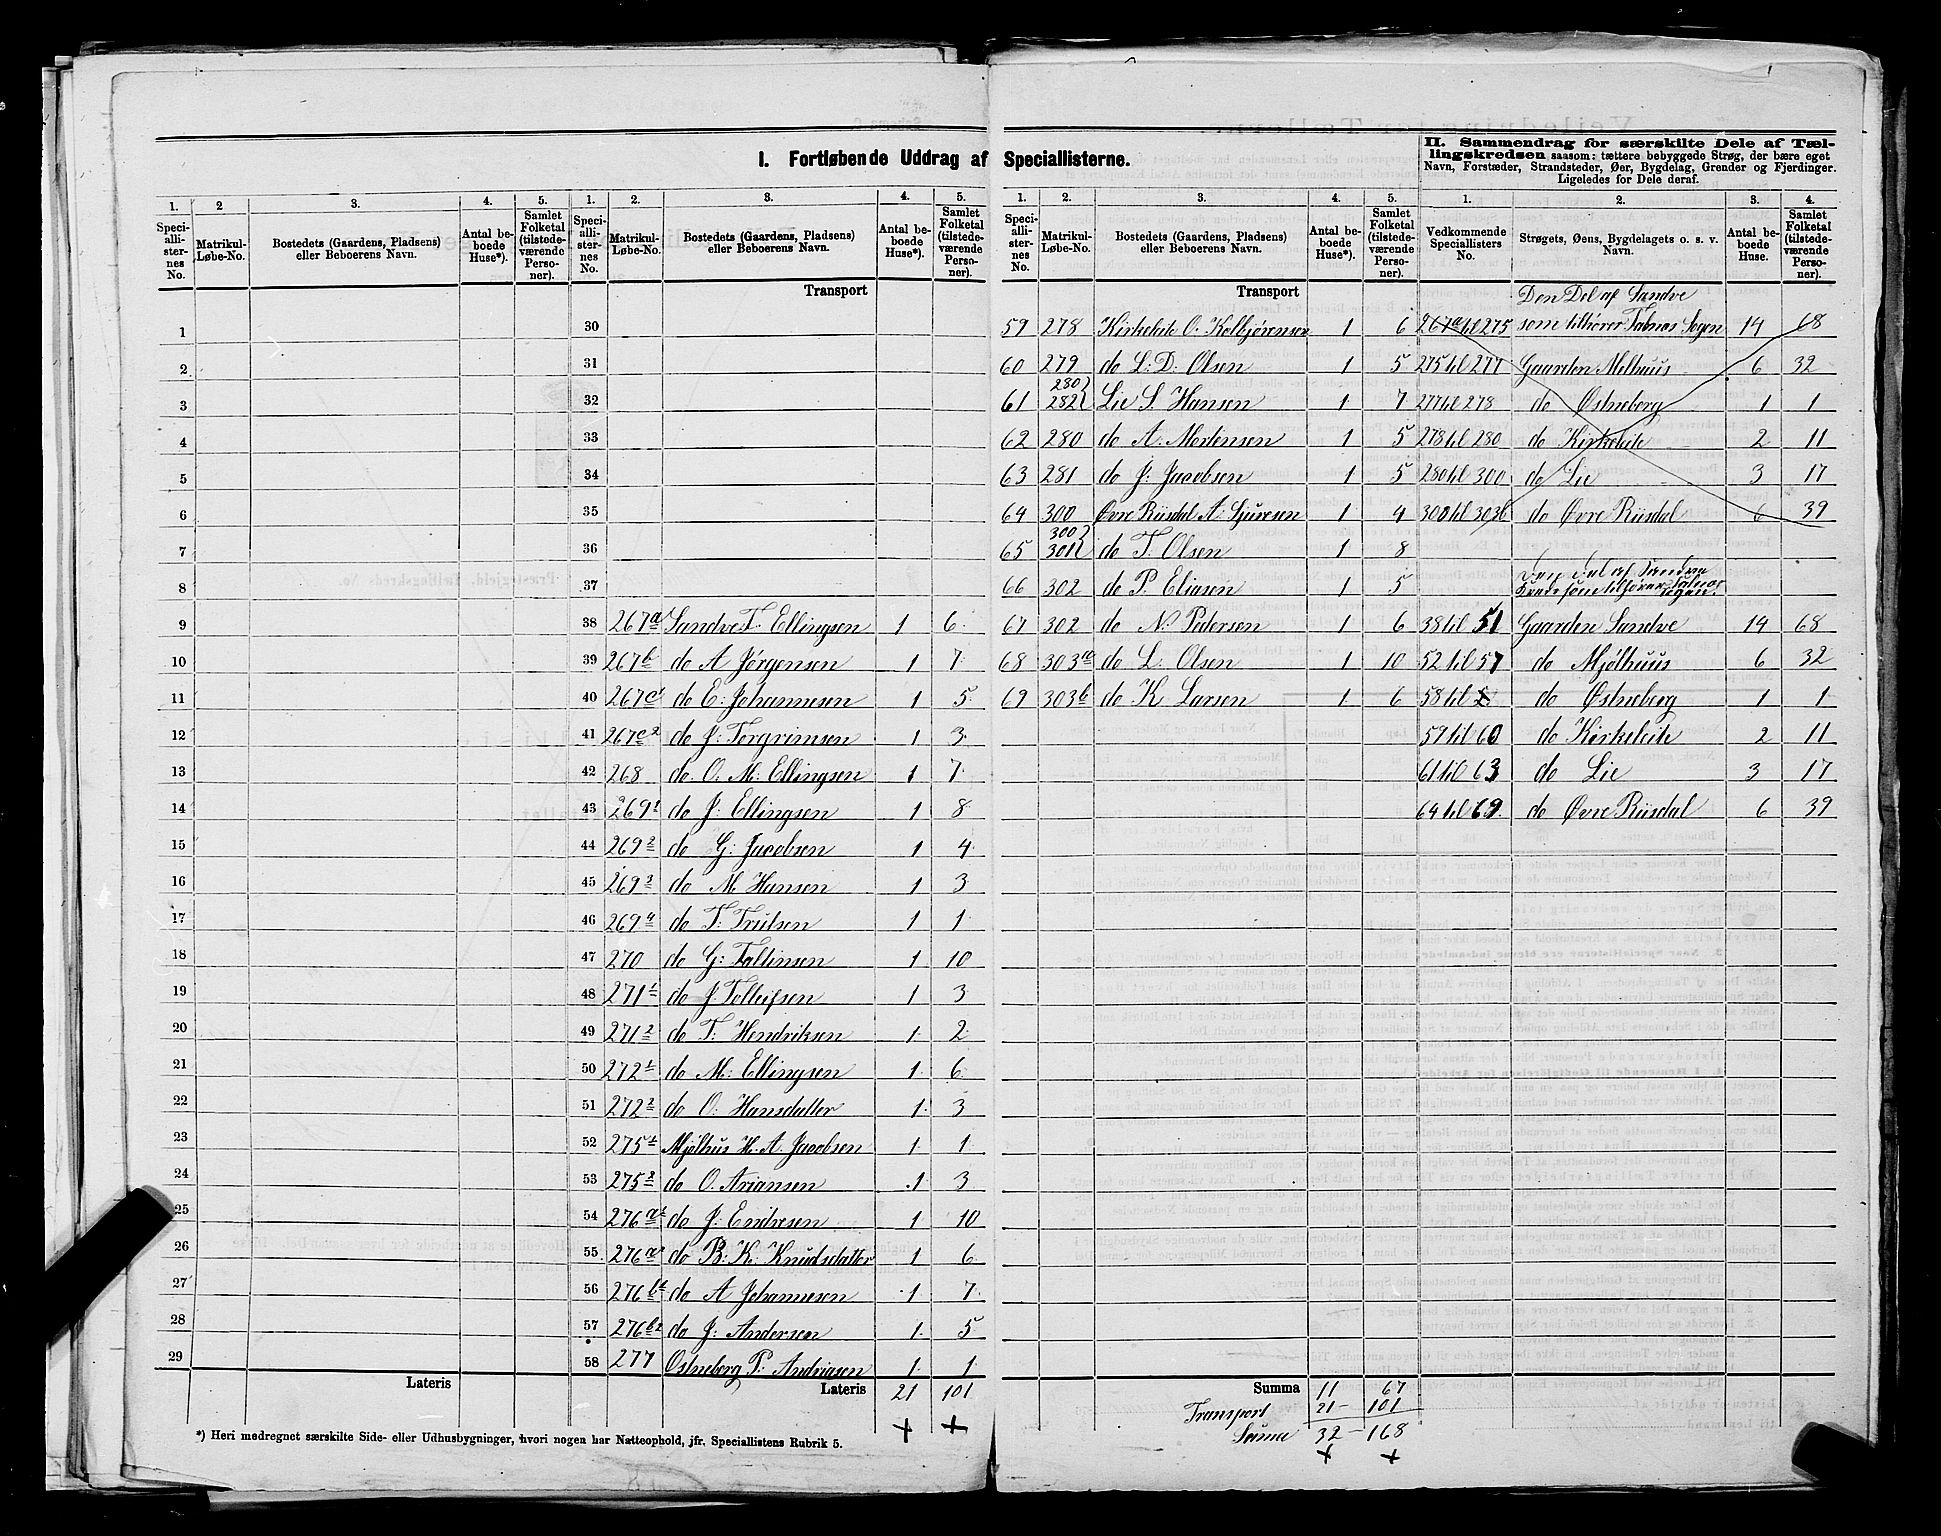 I. Fortløbende Uddrag af Speciallisterne.
II. Sammendrag for særskilte Dele af Tæl-
lingskredsen saasom: tættere bebyggede Strøg, der bære eget
Navn, Forstæder, Strandsteder, Øer, Bygdelag, Grender og Fjerdinger.
Ligeledes for Dele deraf.
1. 2 3. 4. 5. 1. 2. 3. 4. 5.
Speci-allister-nes No. Matrikul-Løbe-No. Bostedets (Gaardens, Pladsens) eller Beboerens Navn. Antal be-boede Huse*). Samlet Folketal (tilstede-værende Perso-ner).
Speci-allister-nes No. Matrikul-Løbe-No. Bostedets (Gaardens, Pladsens) eller Beboerens Navn. Antal be-boede Huse*). Samlet Folketal (tilstede-værende Perso-ner).
Transport
1 30
2 31
3 32
4 33
5 34
6 35
7 36
8 37
9 38 267a Sandve T. Ellingsen 1 6
10 39 267b do A Jörgensen 1 7
11 40 267c1 do E: Johannesen 1 5
12 41 267c2 do J: Torgrimsen 1 3
13 42 268 do O. M: Ellingsen 1 7
14 43 269 1 do J: Ellingsen 1 8
15 44 269 2 do G: Jacobsen 1 4
16 45 269 3 do M Hansen 1 3
17 46 269 4 do T: Trulsen 1 1
18 47 270 do G: Faltinsen 1 10
19 48 271 1 do J. Tolleifsen 1 3
20 49 271 2 do T. Hendriksen 1 2
21 50 272 1 do M: Ellingsen 1 6
22 51 272 2 do O: Hansdatter 1 3
23 52 275 1 Mjølhus H. A. Jacobsen 1 1
24 53 275 2 do O. Ariansen 1 3
25 54 276 a1 do J: Endresen 1 10
26 55 276 a2 do B: K: Knudsdatter 1 6
27 56 276 b1 do A Johannesen 1 7
28 57 276 b2 do J: Andersen 1 5
29 58 277 Østneberg P: Andriasen 1 1
Lateris Lateris 21 101
*) Heri medregnet særskilte Side- eller Udhusbygninger, hvori nogen har Natteophold, jfr. Speciallistens Rubrik 5.
1. 2. 3. 4. 5. 1. 2. 3. 4.
Speci-allister-nes No. Matrikul-Løbe-No. Bostedets (Gaardens, Pladsens) eller Beboerens Navn. Antal be-boede Huse*). Samlet Folketal (tilstede-værende Perso-ner).
Vedkommende Speciallisters No. Strøgets, Øens, Bygdelagets o. s. v. Navn. Antal be-boede Huse. Samlet Folketal (tilstede-værende Perso-ner).
Transport Den Del af Sandve
59 278 Kirkeleite O. Kolbjørensen 1 6 267a til 275 som tilhører Falnæs Sogn 14 68
60 279 do L: D. Olsen 1 5 275 til 277 Gaarden Melhuus 6 32
61 280 282 Lie S. Hansen 1 7 277 til 278 do Østneberg 1 1
62 280 do A. Mortensen 1 5 278 til 280 do Kirkeleite 2 11
63 281 do J: Jacobsen 1 5 280 til 300 do Lie 3 17
64 300 Øvre Riisdal A: Sjuresen 1 4 300 til 303b do Øvre Riisdal 6 39
65 300 301 do T. Olsen 1 8
66 302 do P. Eliasen 1 5 Den Del af Sandve Kreds som tilhører Falnæs Sogn.
67 302 do N. Pedersen 1 6 38 til 51 Gaarden Sandve 14 68
68 303 a do L. Olsen 1 10 52 til 57 do Mjølhuus 6 32
69 303 b do K Larsen 1 6 58 til do Østneberg 1 1
59 til 60 do Kirkeleite 2 11
61 til 63 do Lie 3 17
64 til 69. do Øvre Riisdal 6 39
Summa 11 67
Transport 21 - 101
Suma 32 - 168